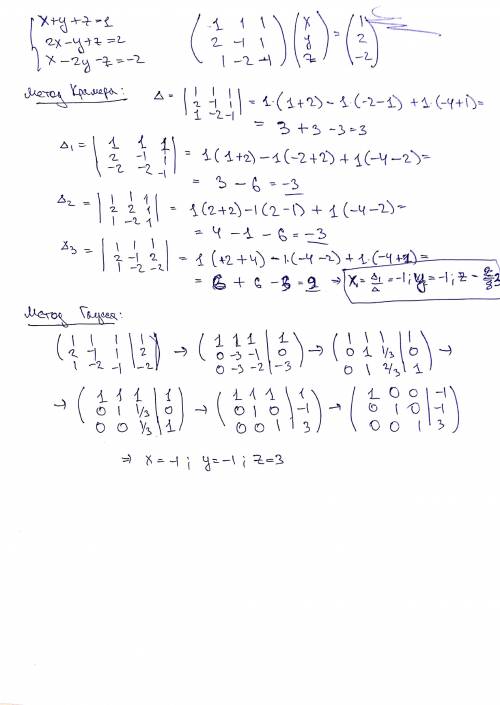 { x+y+z=1
2x-y+z=2
x-2y-z=-2
( 1 1 1 ; 2 -1 1 ; 1 -2 -1 ) ( x ; y ; z ) = ( 1 ; 2 ; -2 )
Метод Крамера: Δ = | 1 1 1 ; 2 -1 1 ; 1 -2 -1 | = 1·(1+2) - 1·(-2-1) + 1·(-4+1) =
= 3 + 3 - 3 = 3
Δ₁ = | 1 1 1 ; 2 -1 1 ; -2 -2 -1 | = 1(1+2) - 1(-2+2) + 1(-4-2) =
= 3 - 6 = -3
Δ₂ = | 1 1 1 ; 2 2 1 ; 1 -2 1 | = 1(2+2) - 1(2-1) + 1(-4-2) =
= 4 - 1 - 6 = -3
Δ₃ = | 1 1 1 ; 2 -1 2 ; 1 -2 -2 | = 1(+2+4) - 1·(-4-2) + 1·(-4+1) =
= 6 + 6 - 3 = 9 ⇒ x = Δ₁/Δ = -1; y = -1; z =
Метод Гаусса:
( 1 1 1 | 1 ; 2 -1 1 | 2 ; 1 -2 -1 | -2 ) → ( 1 1 1 | 1 ; 0 -3 -1 | 0 ; 0 -3 -2 | -3 ) → ( 1 1 1 | 1 ; 0 1 1/3 | 0 ; 0 1 2/3 | 1 ) →
→ ( 1 1 1 | 1 ; 0 1 1/3 | 0 ; 0 0 1/3 | 1 ) → ( 1 1 1 | 1 ; 0 1 0 | -1 ; 0 0 1 | 3 ) → ( 1 0 0 | -1 ; 0 1 0 | -1 ; 0 0 1 | 3 )
⇒ x = -1; y = -1; z = 3